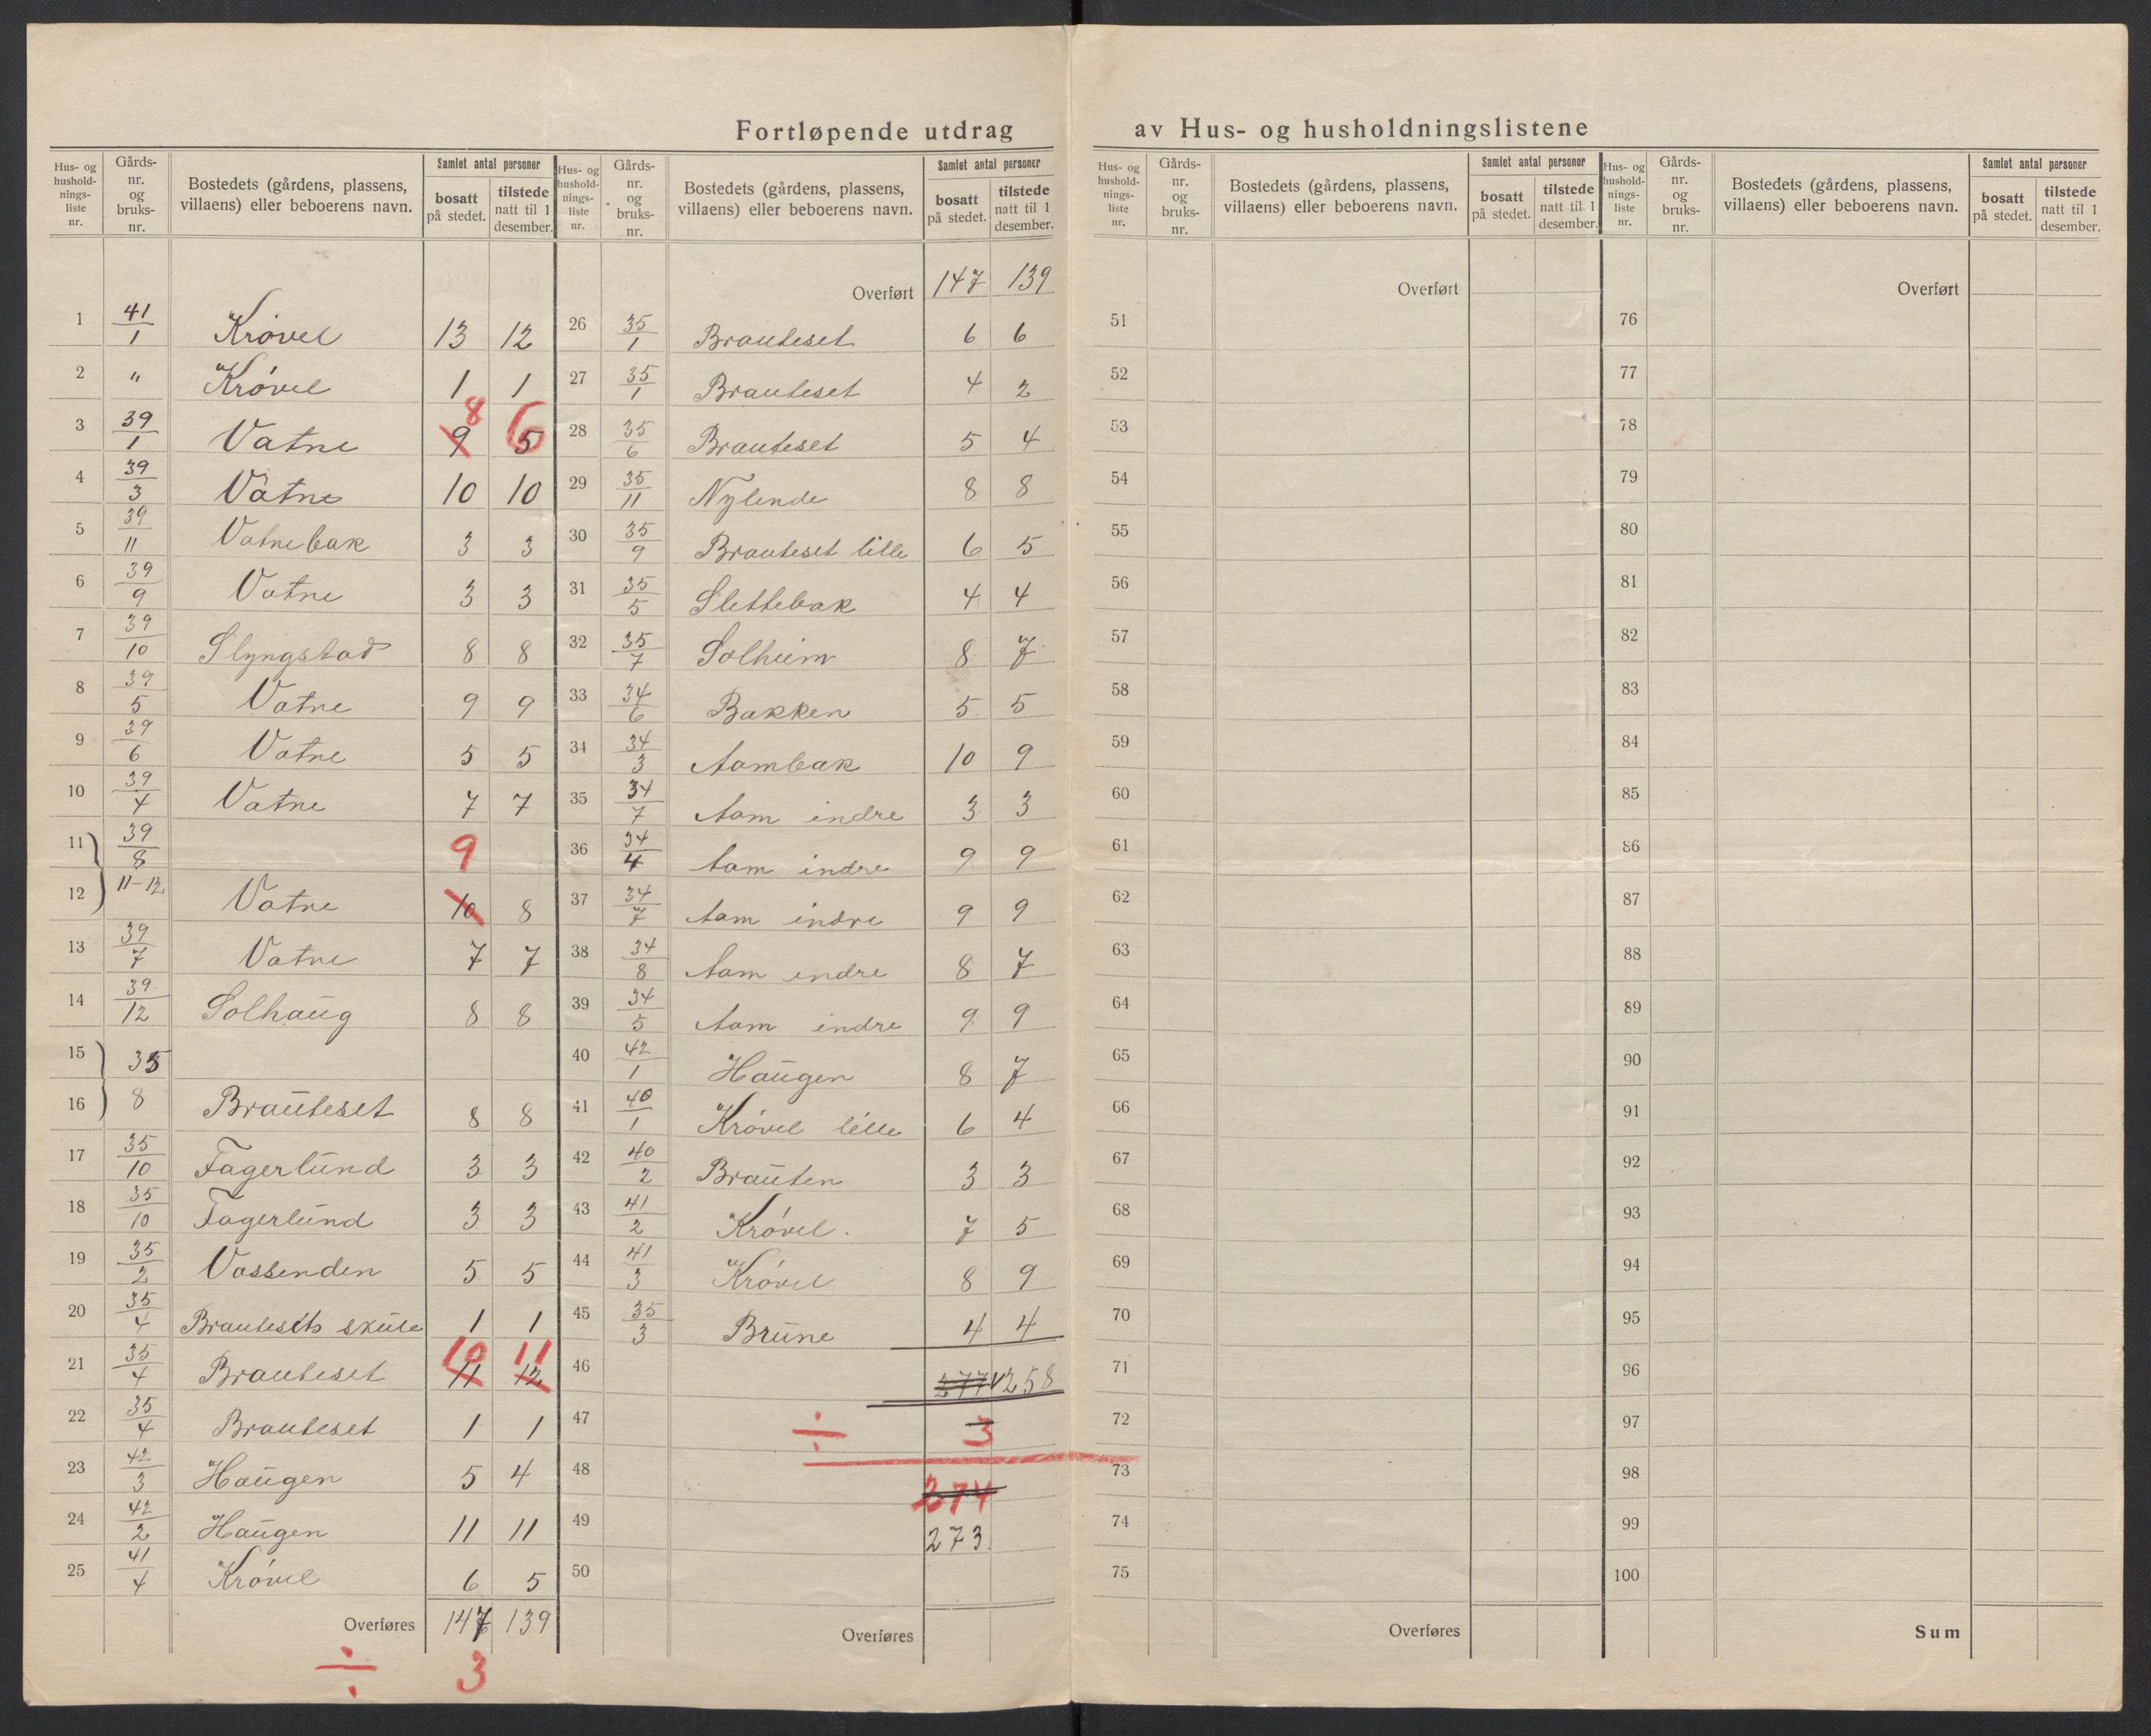 Fortløpende utdrag av Hus- og husholdningslistene
Hus- og husholdnings-liste nr. | Gårds-nr. og bruks-nr. | Bostedets (gårdens, plassens, villaens) eller beboerens navn. | Samlet antal personer bosatt på stedet. | tilstede natt til 1 desember.
1 41/1 Krøvel 13 12
2 " Krøvel 1 1
3 39/1 Vatne 9 8 5 6
4 39/3 Vatne 10 10
5 39/11 Vatnebak 3 3
6 39/9 Vatne 3 3
7 39/10 Slyngstad 8 8
8 39/5 Vatne 9 9
9 39/6 Vatne 5 5
10 39/4 Vatne 7 7
11 39/8 9
12 11-12 Vatne 10 8
13 39/7 Vatne 7 7
14 39/12 Solhaug 8 8
15 35
16 8 Brauteset 8 8
17 35/10 Fagerlund 3 3
18 35/10 Fagerlund 3 3
19 35/2 Vassenden 5 5
20 35/4 Brautesets skule 1 1
21 35/4 Brauteset 10 11 11 12
22 35/4 Brauteset 1 1
23 42/3 Haugen 5 4
24 42/2 Haugen 11 11
25 41/4 Krøvel 6 5
Overføres 147 139
÷ 3
Hus- og husholdnings-liste nr. | Gårds-nr. og bruks-nr. | Bostedets (gårdens, plassens, villaens) eller beboerens navn. | Samlet antal personer bosatt på stedet. | tilstede natt til 1 desember.
Overført 147 139
26 35/1 Brauteset 6 6
27 35/1 Brauteset 4 2
28 35/6 Brauteset 5 4
29 35/11 Nylende 8 8
30 35/9 Brauteset lille 6 5
31 35/5 Slettebak 4 4
32 35/7 Solheim 8 7
33 34/6 Bakken 5 5
34 34/3 Aambak 10 9
35 34/7 Aam indre 3 3
36 34/4 Aam indre 9 9
37 34/7 Aam indre 9 9
38 34/8 Aam indre 8 7
39 34/5 Aam indre 9 9
40 42/1 Haugen 8 7
41 40/1 Krøvel lille 6 4
42 40/2 Brauten 3 3
43 41/2 Krøvel. 7 5
44 41/3 Krøvel 8 9
45 35/3 Brune 4 4
46 277 258
47 ÷ 3
48 274
49 273
50
Overføres
Hus- og husholdnings-liste nr. | Gårds-nr. og bruks-nr. | Bostedets (gårdens, plassens, villaens) eller beboerens navn. | Samlet antal personer bosatt på stedet. | tilstede natt til 1 desember.
Overført
51
52
53
54
55
56
57
58
59
60
61
62
63
64
65
66
67
68
69
70
71
72
73
74
75
Overføres
Hus- og husholdnings-liste nr. | Gårds-nr. og bruks-nr. | Bostedets (gårdens, plassens, villaens) eller beboerens navn. | Samlet antal personer bosatt på stedet. | tilstede natt til 1 desember.
Overført
76
77
78
79
80
81
82
83
84
85
86
87
88
89
90
91
92
93
94
95
96
97
98
99
100
Sum